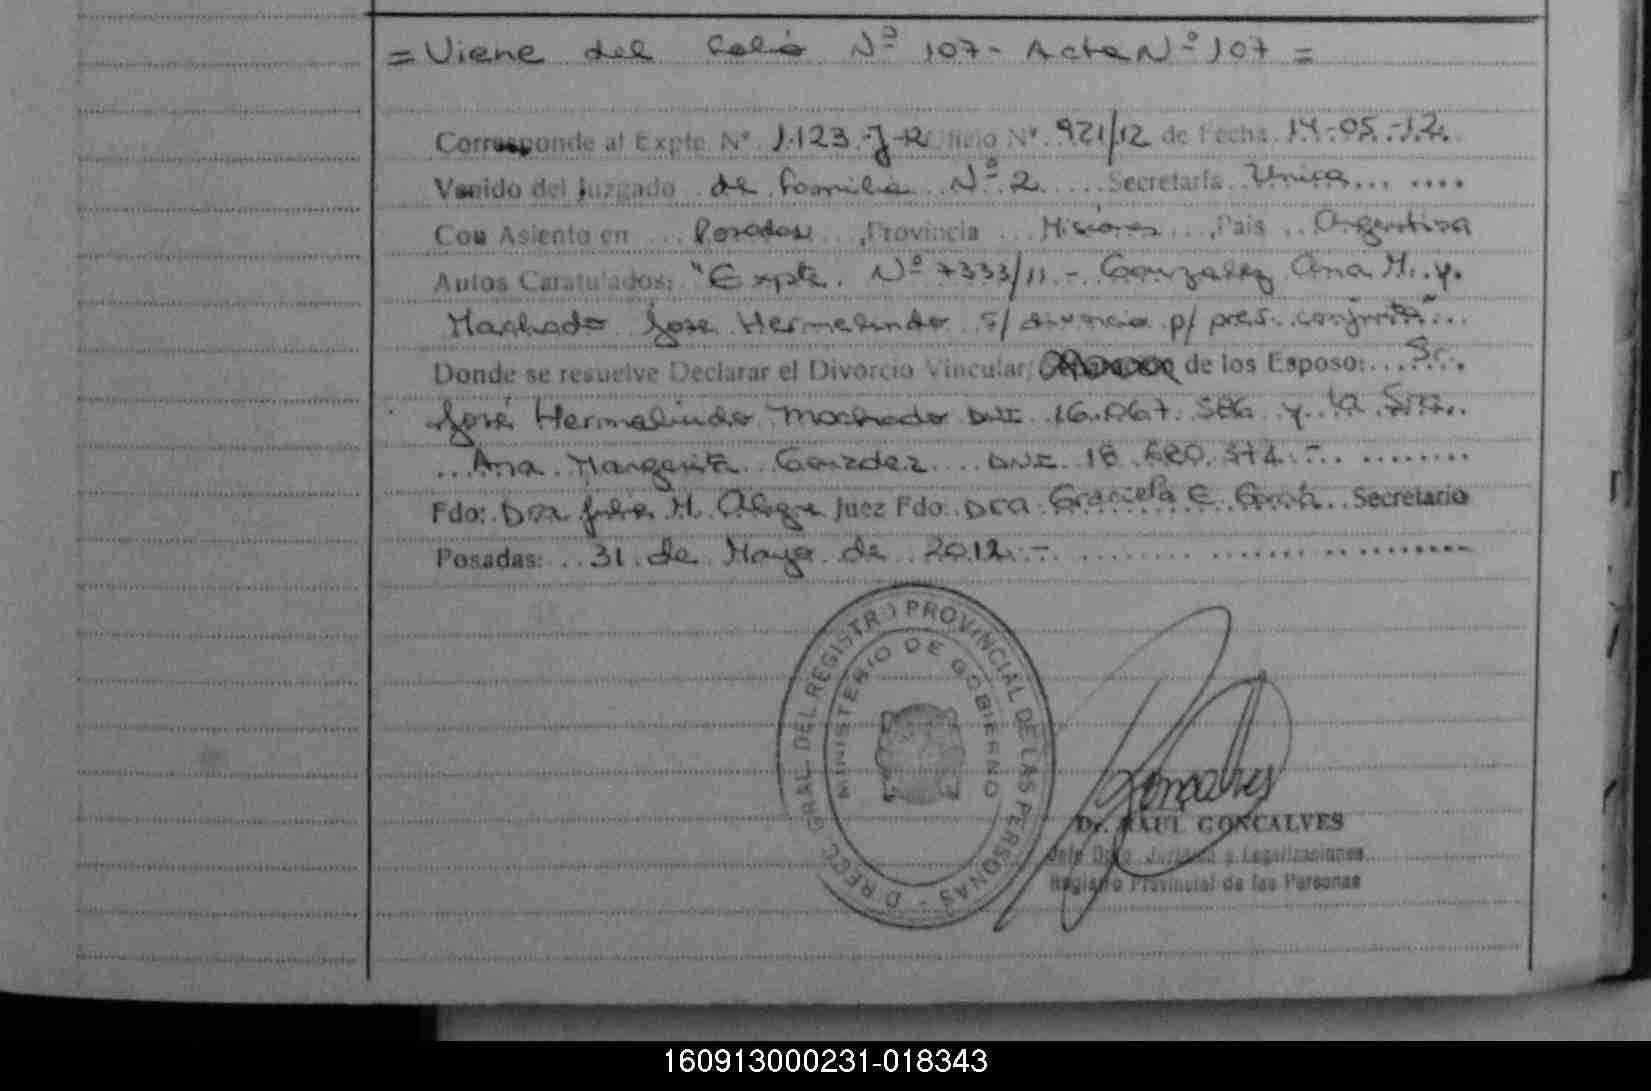 = Viene del Folio Nº 107 - Acta Nº 107 =
Corresponde al Expte Nº 1.123-J-12 Oficio Nº 921/12 de Fecha 14-05-12.
Venido del Juzgado de Familia Nº 2 Secretaría Unica
Con Asiento en Posadas, Provincia Misiones, Pais Argentina
Autos Caratulados: "Expte. Nº 7333/11 - Gonzalez Ana M. y
Machado Jose Hermelindo s/ divorcio p/ pres. conjunta"
Donde se resuelve Declarar el Divorcio Vincular; de los Esposo: Sr.
José Hermelindo Machado DNI 16.067. y la Sra.
Ana Margarita Gonzalez DNI 18.
Fdo: Dra M. Alegre Juez Fdo: Dra Graciela E. Secretario
Posadas: 31 de Mayo de 2012.-
DIRECC. GRAL. DEL REGISTRO PROVINCIAL DE LAS PERSONAS -
MINISTERIO DE GOBIERNO
Goncalves
Dr. RAUL GONCALVES
Jefe Dpto. Jurídico y Legalizaciones
Registro Provincial de las Personas
160913000231-018343